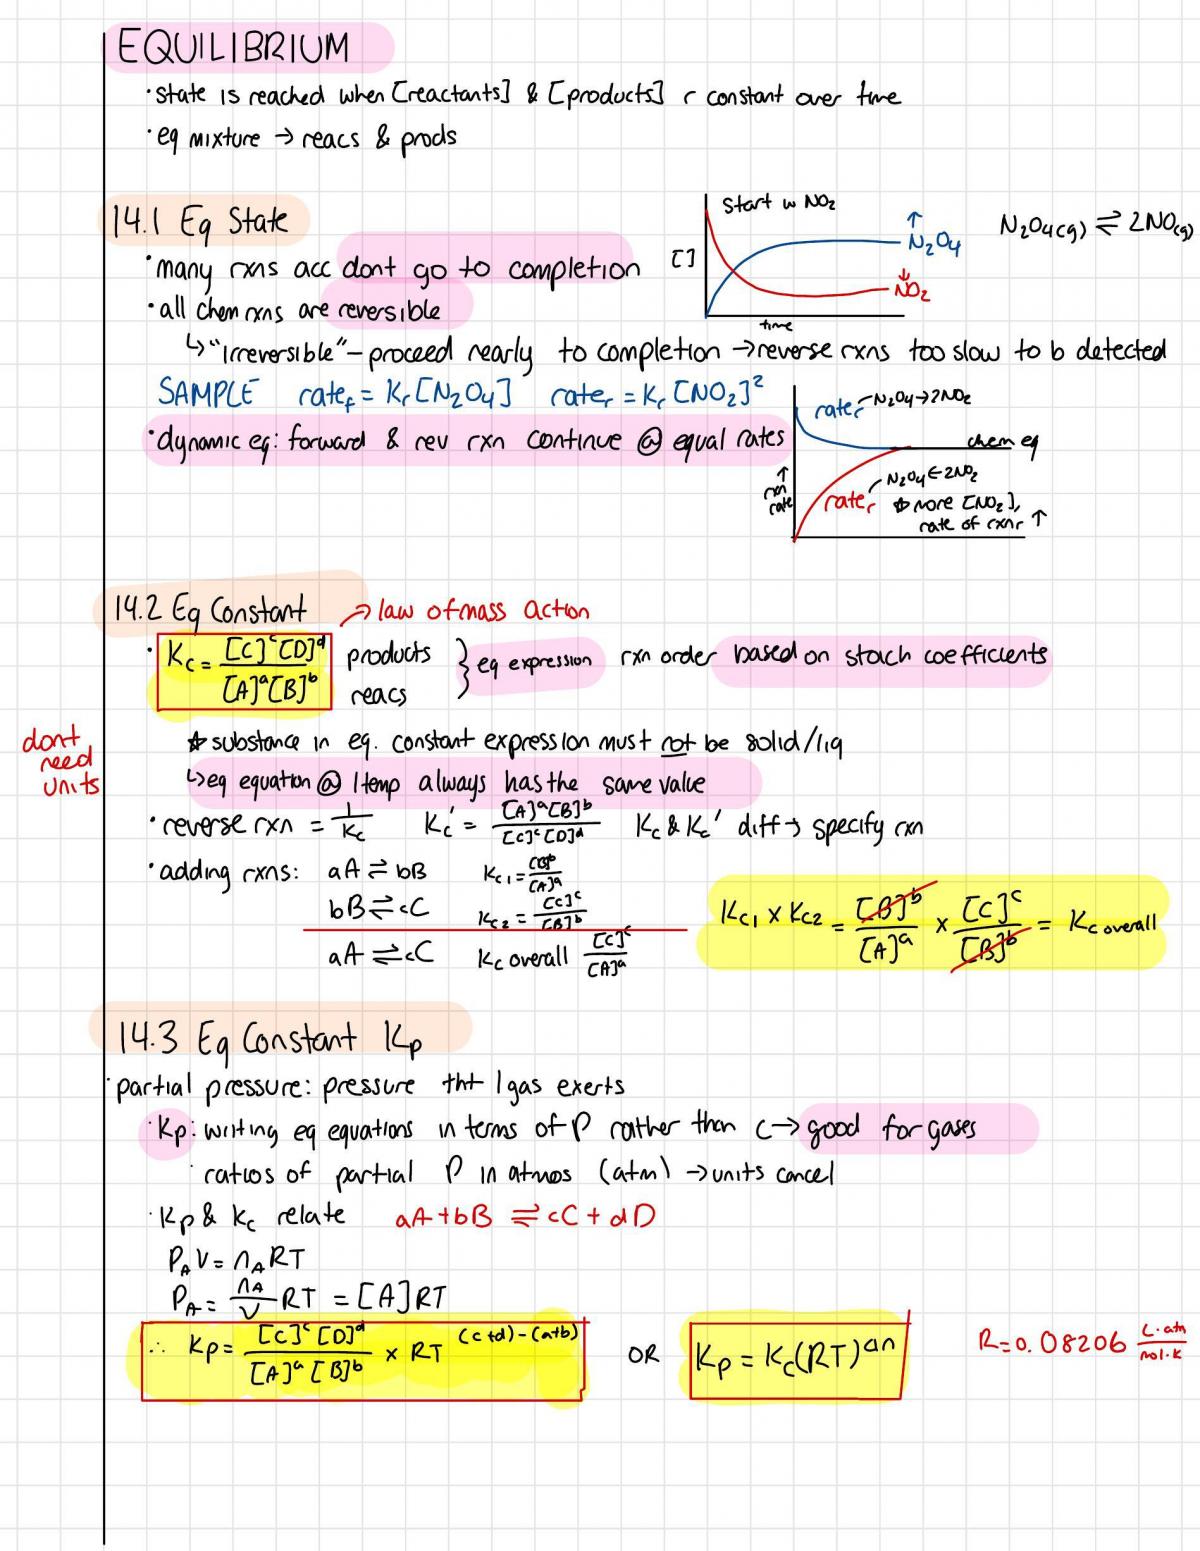 EQUILIBRIUM
· state is reached when [reactants] & [products] r constant over time
· eq mixture → reacs & prods
14.1 Eq State
Start w NO₂
[ ]
↑ N₂O₄
↓ NO₂
time
N₂O₄(g) ⇌ 2NO(g)
· many rxns acc dont go to completion
· all chem rxns are reversible
↳ "irreversible" - proceed nearly to completion → reverse rxns too slow to b detected
SAMPLE rate_f = K_r[N₂O₄] rate_r = K_r[NO₂]²
· dynamic eq: forward & rev rxn continue @ equal rates
rate_r - N₂O₄→2NO₂
chem eq
↑ rxn rate
rate_r N₂O₄←2NO₂
☆ more [NO₂],
rate of rxn_r ↑
14.2 Eq Constant → law of mass action
· K_c = [C]^c[D]^d / [A]^a[B]^b products reacs } eq expression rxn order based on stoich coefficients
dont need units
☆ substance in eq. constant expression must not be solid/liq
↳ eq equation @ 1 temp always has the same value
· reverse rxn = 1/K_c K_c' = [A]^a[B]^b / [C]^c[D]^d K_c & K_c' diff → specify rxn
· adding rxns: aA ⇌ bB K_c1 = [B]^b / [A]^a
bB ⇌ cC K_c2 = [C]^c / [B]^b
aA ⇌ cC K_c overall [C]^c / [A]^a
K_c1 x K_c2 = [B]^b / [A]^a x [C]^c / [B]^b = K_c overall
14.3 Eq Constant K_p
· partial pressure: pressure tht 1 gas exerts
· K_p: writing eq equations in terms of P rather than c → good for gases
· ratios of partial P in atmos (atm) → units cancel
· K_p & K_c relate aA + bB ⇌ cC + dD
P_A V = n_A RT
P_A = n_A/V RT = [A]RT
∴ K_p = [C]^c[D]^d / [A]^a[B]^b x RT^(c+d)-(a+b) OR K_p = K_c(RT)^Δn R = 0.08206 L·atm / mol·K